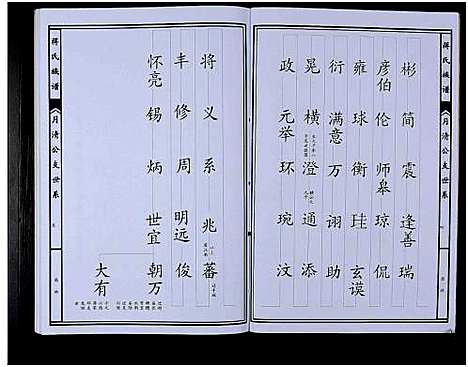 蒋氏族谱
《月清公支世系
彬 简 震 逢善 瑞
彦伯 伦 师皋 琼 侃
雍 球 衡 珪 玄谟
衍 满意 万 诩 助
晃 横 澄 通 添
政 元举 环 琬 汶
将 义 系 兆 蕃
丰 修 周 明远 俊
怀亮 锡 炳 世宜 朝万
大有
蒋氏族谱
《月清公支世系